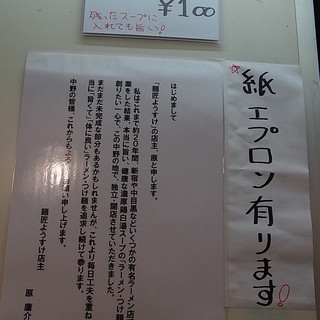 ¥100
残ったスープに
入れても旨い!
紙エプロン有ります!
はじめまして
「麺匠ようすけ」の店主、原と申します。
私はこれまで約20年間、新宿や中目黒などいくつかの有名ラーメン店
業をした結果、本当に旨い、健康な濃厚鶏白湯スープの「ラーメン・つけ麺
創りたい一心で、この中野の地で、独立・開店させていただきました。
まだまだ未完成な部分もあるかもしれませんが、これより毎日工夫を重ね
当に「旨くて」「体に良い」ラーメン・つけ麺を追求し続けて参ります。
中野の皆様、これからもよ
願い申し上げます。
麺匠ようすけ店主
原 庸介